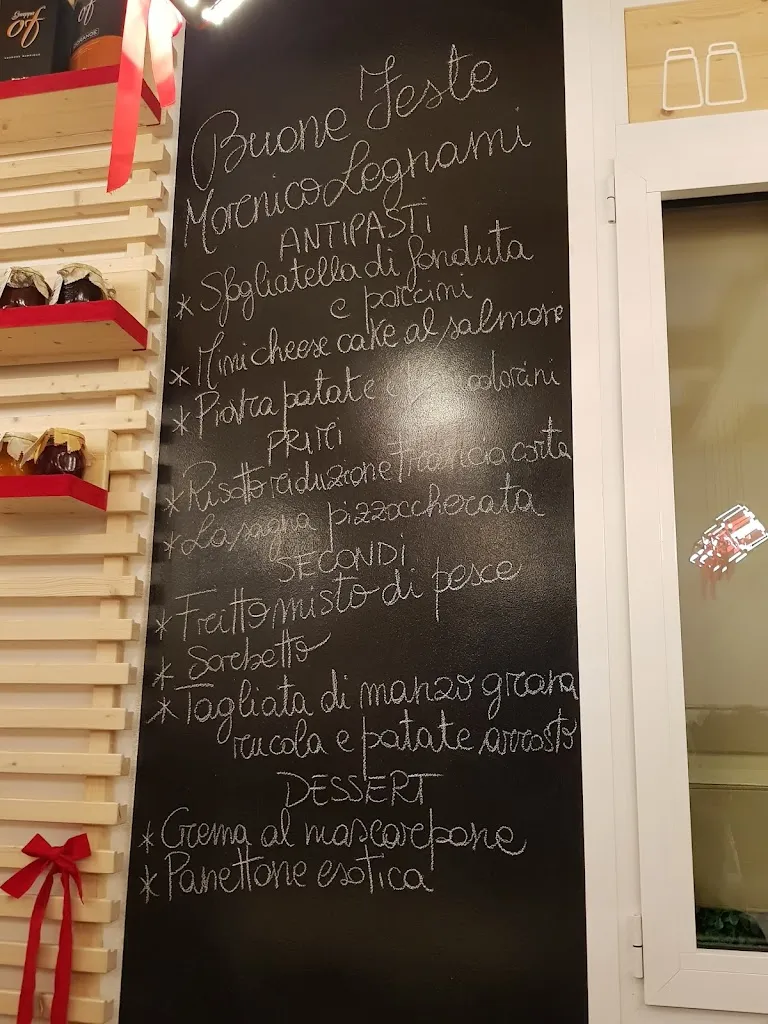 Buone Feste
Morenico Legnami
ANTIPASTI
* Sfogliatella di fonduta
e porcini
* Mini cheese cake al salmone
* Piovra patate e colorini
PRIMI
* Risotto riduzione Francia corta
* Lasagna pizzoccherata
SECONDI
* Fritto misto di pesce
* Sorbetto
* Tagliata di manzo grana
rucola e patate arrosto
DESSERT
* Crema al mascarpone
* Panettone esotica